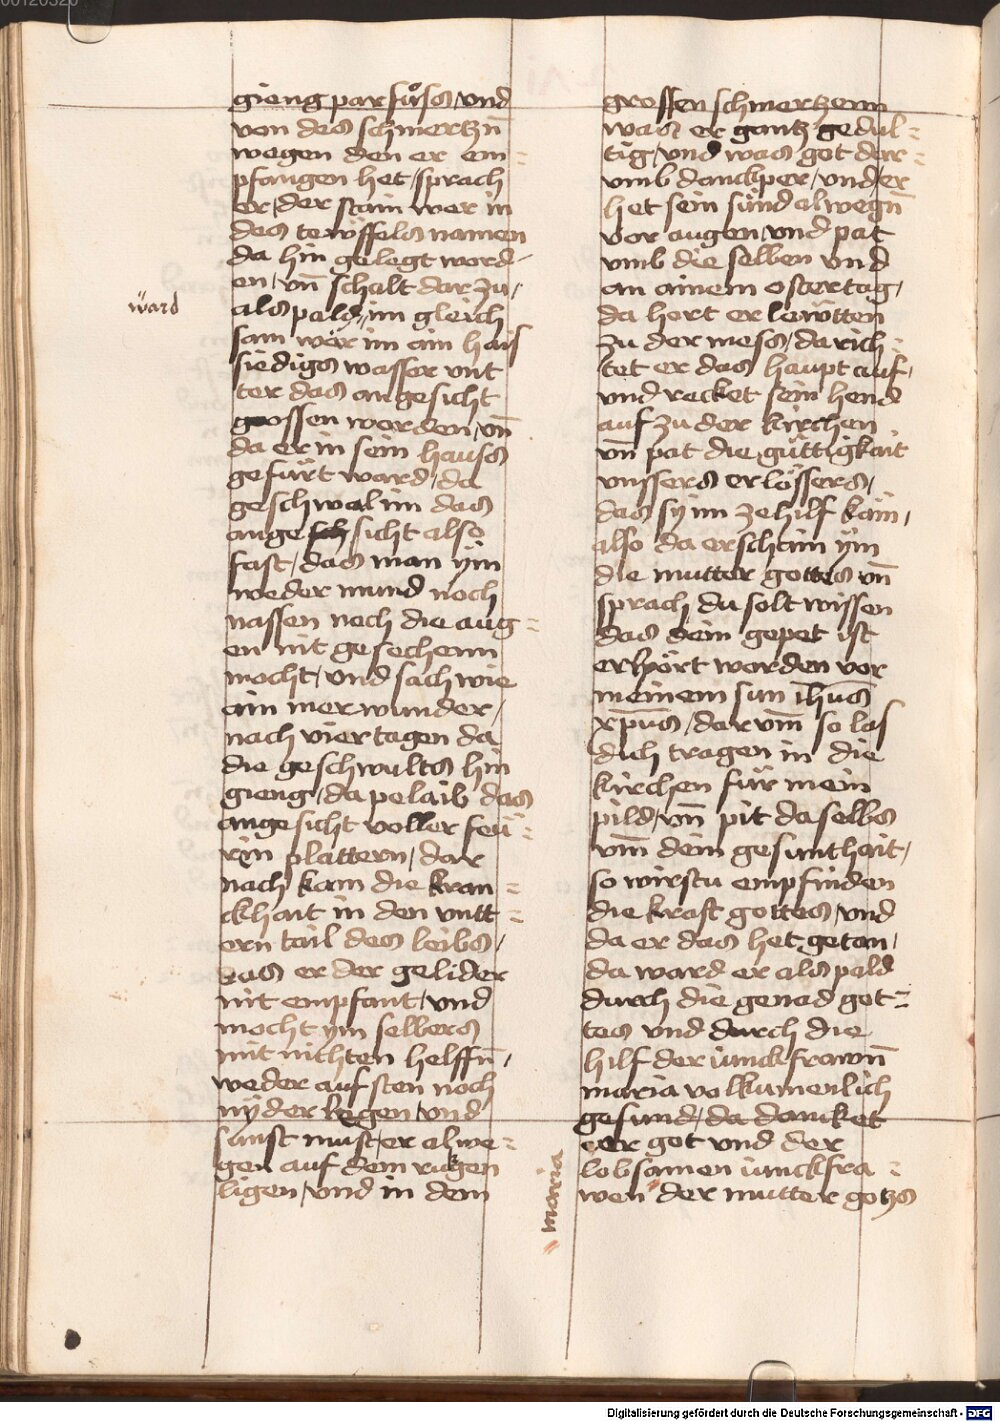 gieng parfůss / vnd
von des schmertzn̄
wegen den er em⸗
pfangen het / sprach
er / der stain wer in
des tewffels namen
da hin gelegt word⸗
en / vn̄ schalt dar zu /
als pald〃 im gleich
ward
sam wär im ain hais
siedigs wasser vnt
ter das angesicht
gossen worden / vn̄
da er in sein hauss
gefürt ward / da
geschwal im das
ange sicht also
fast / das man ÿm
weder mund noch
nassen noch die aug⸗
en nit gesechenn
mocht / vnd sach wie
ain mer wunder /
nach vier tagen da
die geschwults hin
gieng / da pelaib das
angesicht voller feü⸗
rin plattern / dar
nach kam die kran⸗
ckhait in den vntt⸗
ern tail des leibs /
das er der gelider
nit empfant / vnd
mocht ÿm selbers
mit nichten helffn̄ /
weder auf sten noch
nÿder legen / vnd
sunst must er alwe⸗
gen auf dem rugken
ligen / vnd in dem
grossen schmertzenn
was er gantz gedul⸗
tig / vnd was got dar⸗
vmb danckper / vnd er
het sein sünd alwegn̄
vor augen / vnd pat
vmb die selben vnd
an ainem ostertag /
da hort er lewtten
zu der mess / da rich⸗
tet er das haupt auf /
vnd recket sein hend
auf zu der kirchen
vn̄ pat die güttigkait
vnssers erlössers /
das sÿ im ze hilf käm /
also da erschain ÿm
die mutter gottes vn̄
sprach du solt wissen
das dein gepet ist
erhört worden vor
meinem sun ihūs
xp̄us / dar vm̄ so las
dich tragen in die
kirchen für mein
pild / vn̄ pit daselbs
vm̄ dein gesunthait /
so wirstu empfinden
die kraft gottes / vnd
da er das het getan /
da ward er als pald
durch die genad got⸗
tes vnd durch die
hilf der iunckfrawn̄
maria volkumenlich
gesund / da dancket
er got vnd der
lobsamen iunckfra⸗
wen〃 der mutter gotzs
〃maria
Digitalisierung gefördert durch die Deutsche Forschungsgemeinschaft - DFG